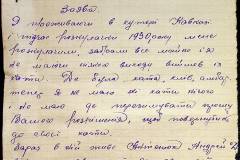 Заява.
Я проживаючи в хуторі Кавказ
і підчас розкуркулення 1930 року мене
розкуркулили, забрали все майно і я
не маючи іншого виходу вийшов із
хати. Де була хата, клів, амбар
тепер я не маю ні хати нічого
і не маю де перезимувати прошу
Вашого розпорядження, щоб повернутись
до своєї хати.
Зараз в ній живе Андрей